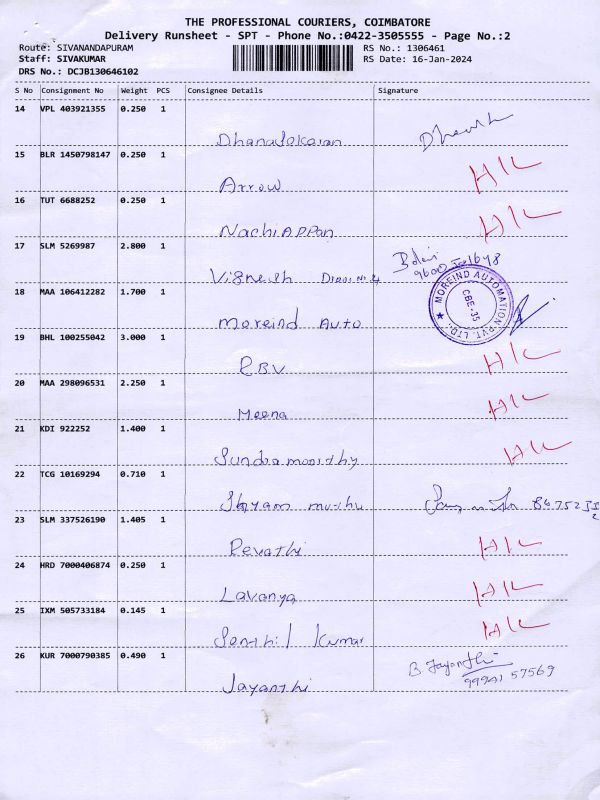 THE PROFESSIONAL COURIERS, COIMBATORE
Delivery Runsheet - SPT - Phone No.:0422-3505555 - Page No.:2
Route: SIVANANDAPURAM RS No.: 1306461
Staff: SIVAKUMAR RS Date: 16-Jan-2024
DRS No.: DCJB130646102
S No Consignment No Weight PCS Consignee Details Signature
14 VPL 403921355 0.250 1
15 BLR 1450798147 0.250 1
Arrow H/L
16 TUT 6688252 0.250 1
Nachiappan H/L
17 SLM 5269987 2.800 1
Vignesh
18 MAA 106412282 1.700 1
Moreind Auto MOREIND AUTOMATION PVT. LTD. ★ CBE-35
19 BHL 100255042 3.000 1
RBV H/L
20 MAA 298096531 2.250 1
Meena H/L
21 KDI 922252 1.400 1
Sundramoorthy H/L
22 TCG 10169294 0.710 1
Shyam muthu
23 SLM 337526190 1.405 1
Revathi H/L
24 HRD 7000406874 0.250 1
Lavanya H/L
25 IXM 505733184 0.145 1
Senthil Kumar H/L
26 KUR 7000790385 0.490 1
Jayanthi B Jayanthi
99941 57569